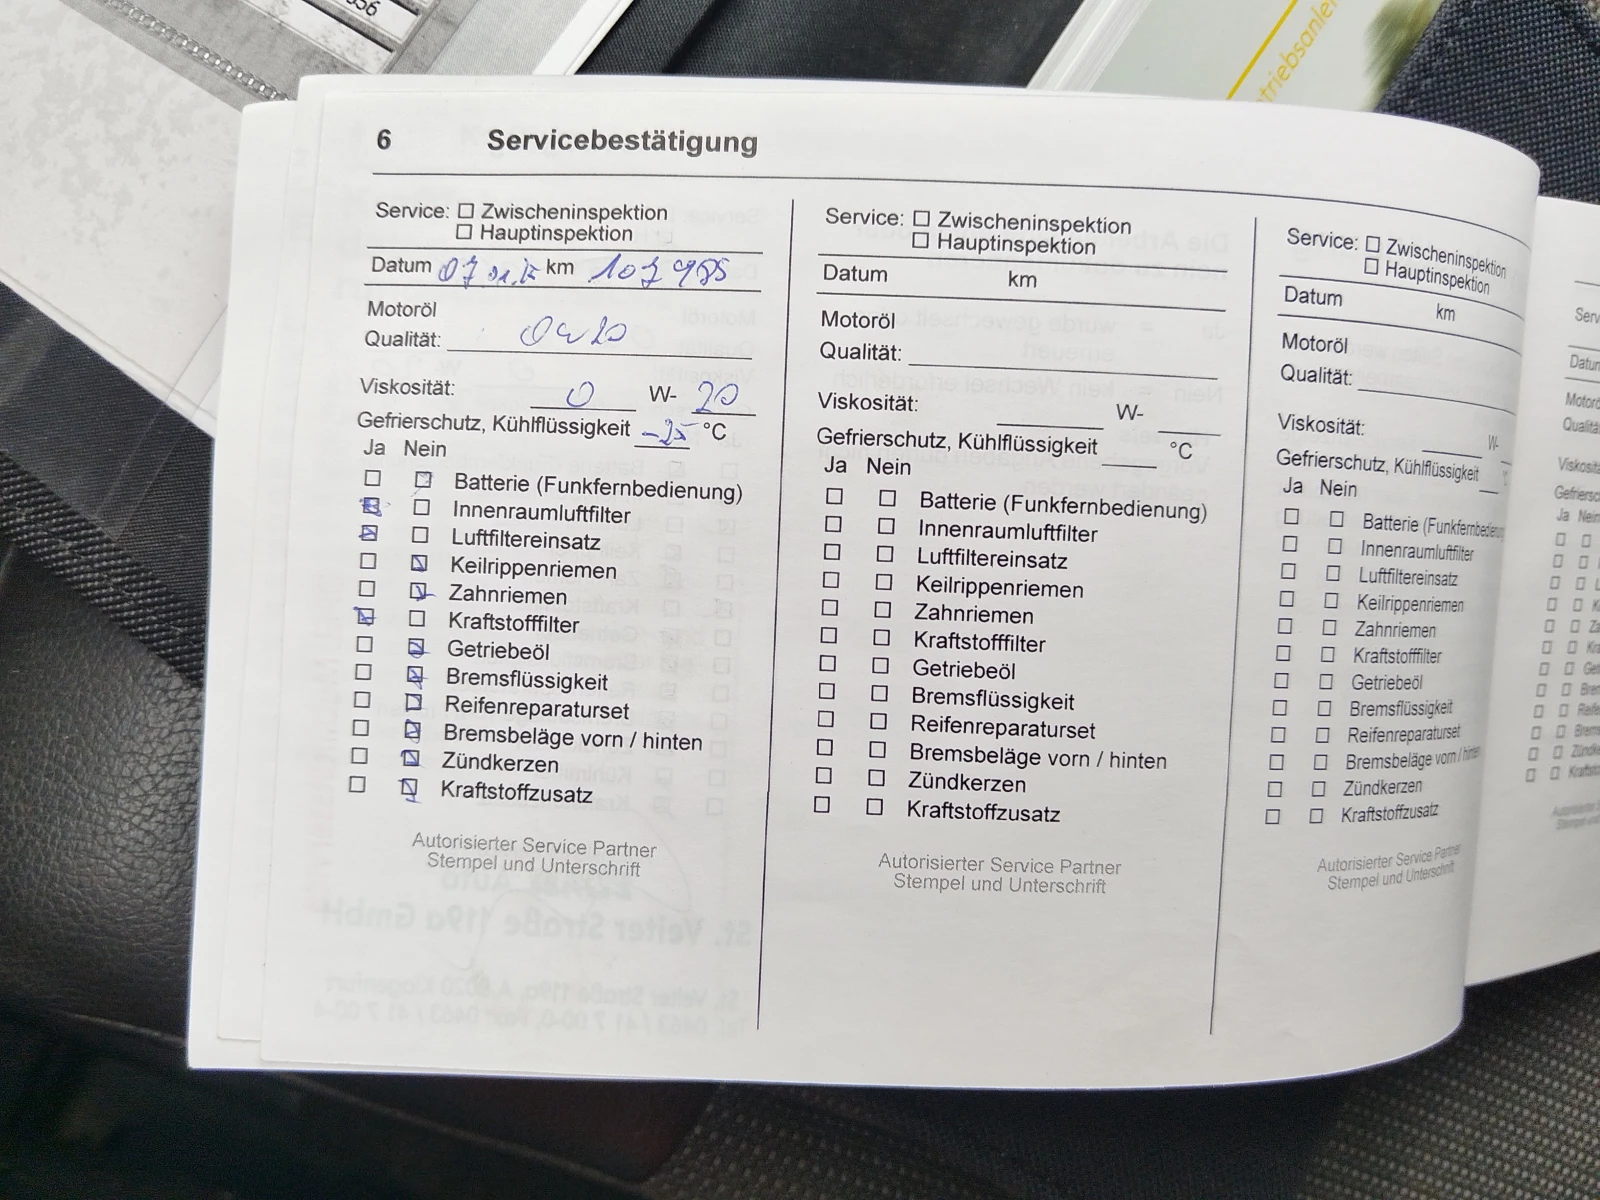 6 Servicebestätigung
Service: ☐ Zwischeninspektion
☐ Hauptinspektion
Datum km
Motoröl
Qualität: 0w20
Viskosität: 0 W- 20
Gefrierschutz, Kühlflüssigkeit -25 °C
Ja Nein
☐ ☒ Batterie (Funkfernbedienung)
☒ ☐ Innenraumluftfilter
☒ ☐ Luftfiltereinsatz
☐ ☒ Keilrippenriemen
☐ ☒ Zahnriemen
☒ ☐ Kraftstofffilter
☐ ☒ Getriebeöl
☐ ☒ Bremsflüssigkeit
☐ ☒ Reifenreparaturset
☐ ☒ Bremsbeläge vorn / hinten
☐ ☒ Zündkerzen
☐ ☒ Kraftstoffzusatz
Autorisierter Service Partner
Stempel und Unterschrift
Service: ☐ Zwischeninspektion
☐ Hauptinspektion
Datum km
Motoröl
Qualität:
Viskosität: W-
Gefrierschutz, Kühlflüssigkeit °C
Ja Nein
☐ ☐ Batterie (Funkfernbedienung)
☐ ☐ Innenraumluftfilter
☐ ☐ Luftfiltereinsatz
☐ ☐ Keilrippenriemen
☐ ☐ Zahnriemen
☐ ☐ Kraftstofffilter
☐ ☐ Getriebeöl
☐ ☐ Bremsflüssigkeit
☐ ☐ Reifenreparaturset
☐ ☐ Bremsbeläge vorn / hinten
☐ ☐ Zündkerzen
☐ ☐ Kraftstoffzusatz
Autorisierter Service Partner
Stempel und Unterschrift
Service: ☐ Zwischeninspektion
☐ Hauptinspektion
Datum km
Motoröl
Qualität:
Viskosität: W-
Gefrierschutz, Kühlflüssigkeit
Ja Nein
☐ ☐ Batterie (Funkfernbedienung
☐ ☐ Innenraumluftfilter
☐ ☐ Luftfiltereinsatz
☐ ☐ Keilrippenriemen
☐ ☐ Zahnriemen
☐ ☐ Kraftstofffilter
☐ ☐ Getriebeöl
☐ ☐ Bremsflüssigkeit
☐ ☐ Reifenreparaturset
☐ ☐ Bremsbeläge vorn / hinten
☐ ☐ Zündkerzen
☐ ☐ Kraftstoffzusatz
Autorisierter Service Partner
Stempel und Unterschrift